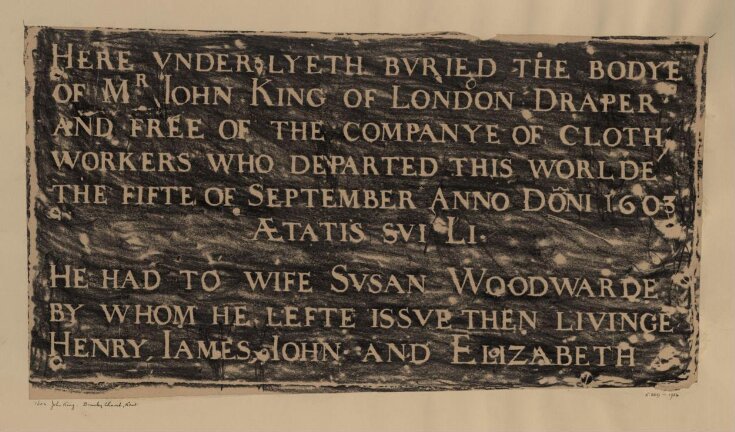 HERE VNDER LYETH BVRIED THE BODYE
OF Mᴿ IOHN KING OF LONDON DRAPER
AND FREE OF THE COMPANYE OF CLOTH,
WORKERS WHO DEPARTED THIS WORLDE
THE FIFTE OF SEPTEMBER ANNO DOÑI 1603
ÆTATIS SVI LI.
HE HAD TO WIFE SVSAN WOODWARDE
BY WHOM HE LEFTE ISSVE THEN LIVINGE
HENRY, IAMES, IOHN AND ELIZABETH
John King Church, Kent